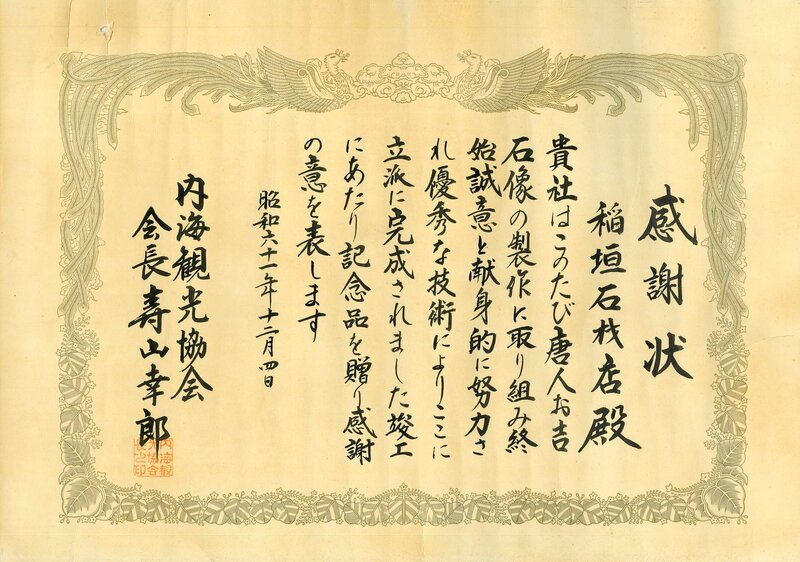 感謝状
稲垣石材店殿
貴社はこのたび唐人お吉
石像の製作に取り組み終
始誠意と献身的に努力さ
れ優秀な技術によりここに
立派に完成されました竣工
にあたり記念品を贈り感謝
の意を表します
昭和六十一年十二月四日
内海観光協会
会長寿山幸郎